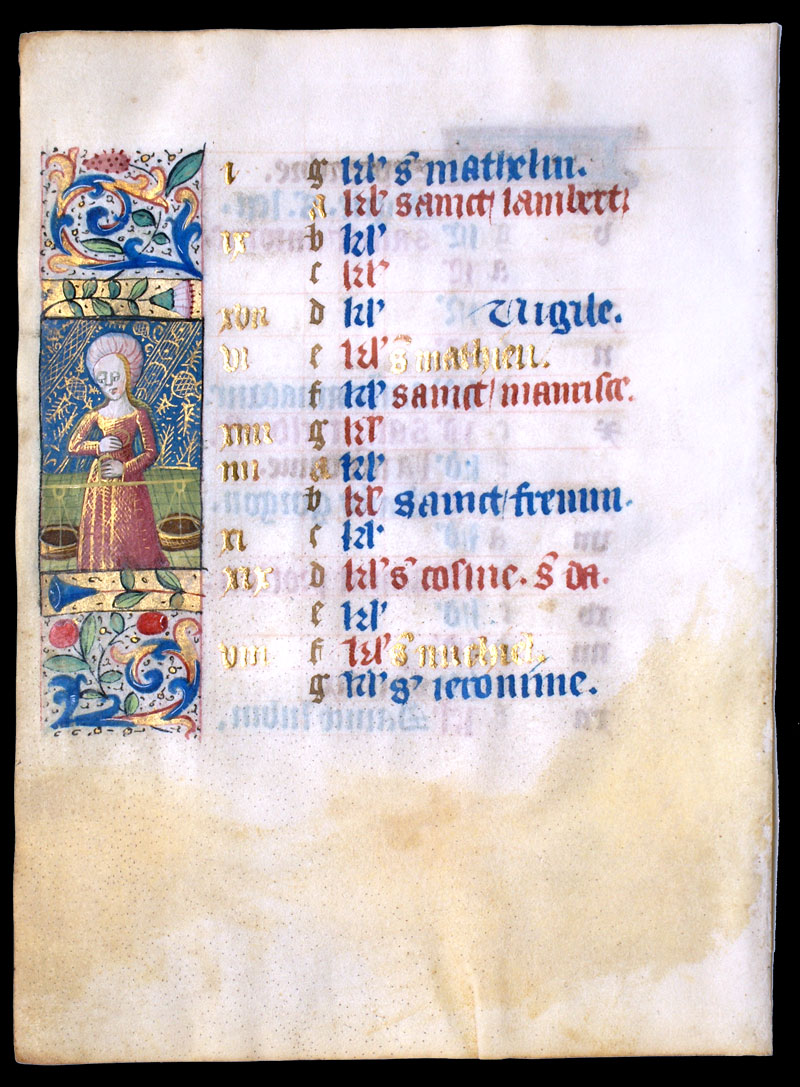 i g kl' s' mathelin.
a kl' sanct lambert
ix b kl'
c kl'
xvii d kl' Vigile.
vi e kl' s' mathieu.
f kl' sanct maurisce.
xiiii g kl'
iii a kl'
b kl' sainct fremin.
xi c kl'
xix d kl' s' cosme. s' da.
e kl'
viii f kl' s' michiel.
g kl' s' ieronime.